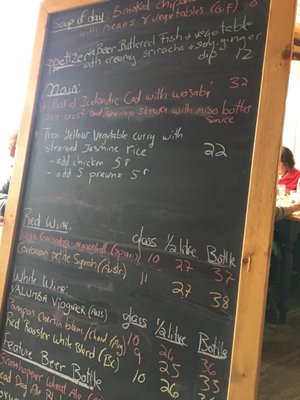 Soup of day: Smoked chipotle
with Beans & vegetables (G.F) 8
Appetizer: Beer Battered Fish & vegetable
with creamy sriracha & soy ginger
dip 12
Main:
Baked Icelandic Cod with wasabi 32
pea crust and shrimp skewer with miso butter
sauce
Thai Yellow Vegetable curry with
steamed Jasmine rice 22
- add chicken 5
- add 5 prawns 5
Red Wine: glass 1/2 litre Bottle
monastrell (Spain) 10 27 37
petite Syrah (Austr) 11 27 38
White Wine: glass 1/2 litre Bottle
YALUMBA Viognier (AUS) 10 26 36
Pampas Chenin blanc/Chard (Arg) 9 25 33
Red Rooster White Blend (BC) 10 26
Feature Beer Bottle
Grasshopper Wheat Ale
Dog Ale